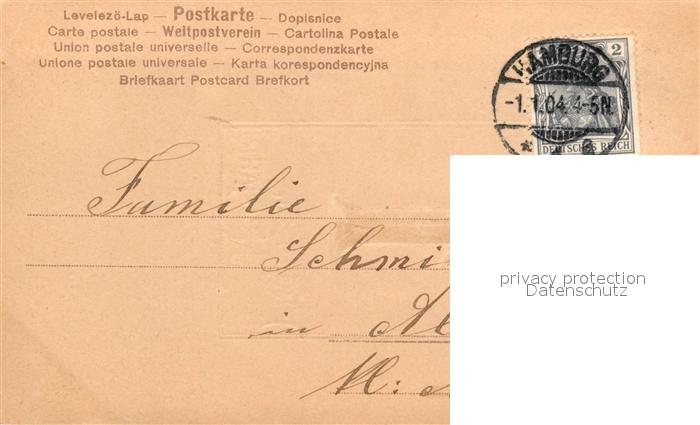 Levelező-Lap — Postkarte — Dopisnice
Carte postale — Weltpostverein — Cartolina Postale
Union postale universelle — Correspondenzkarte
Unione postale universale — Karta korespondencyjna
Briefkaart Postcard Brefkort
2
HAMBURG
-1.1.04.4-5N.
DEUTSCHES REICH
Familie
Schmi
in
privacy protection
Datenschutz